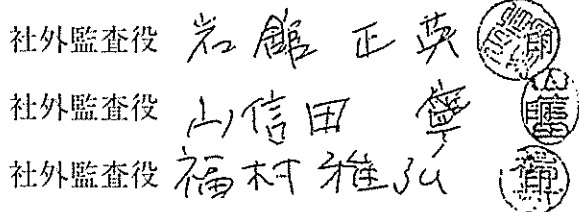 社外監査役 岩館正英
社外監査役 山信田寧
社外監査役 福村雅弘